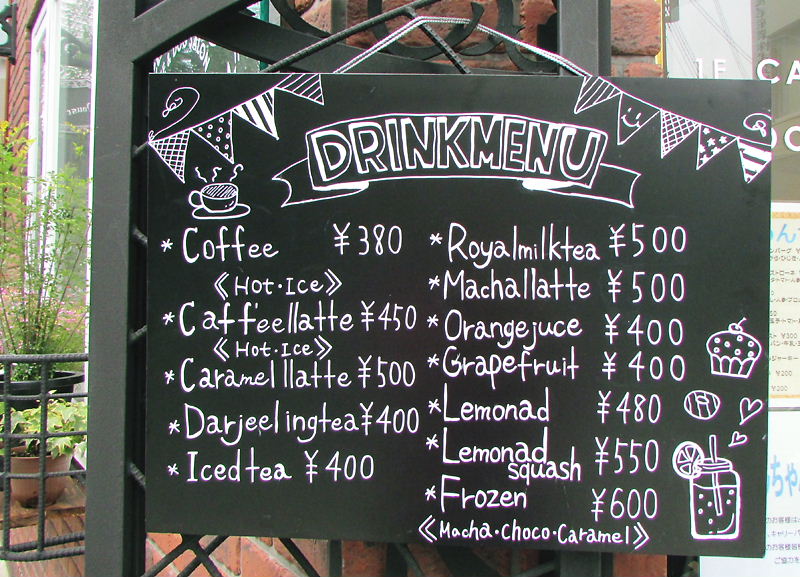 DRINKMENU
*Coffee ¥380
《Hot・Ice》
*Caffeellatte ¥450
《Hot・Ice》
*Caramellatte ¥500
*Darjeelingtea ¥400
*Icedtea ¥400
*Royalmilktea ¥500
*Machallatte ¥500
*Orangejuce ¥400
*Grapefruit ¥400
*Lemonad ¥480
*Lemonad squash ¥550
*Frozen ¥600
《Macha・Choco・Caramel》
1F CA